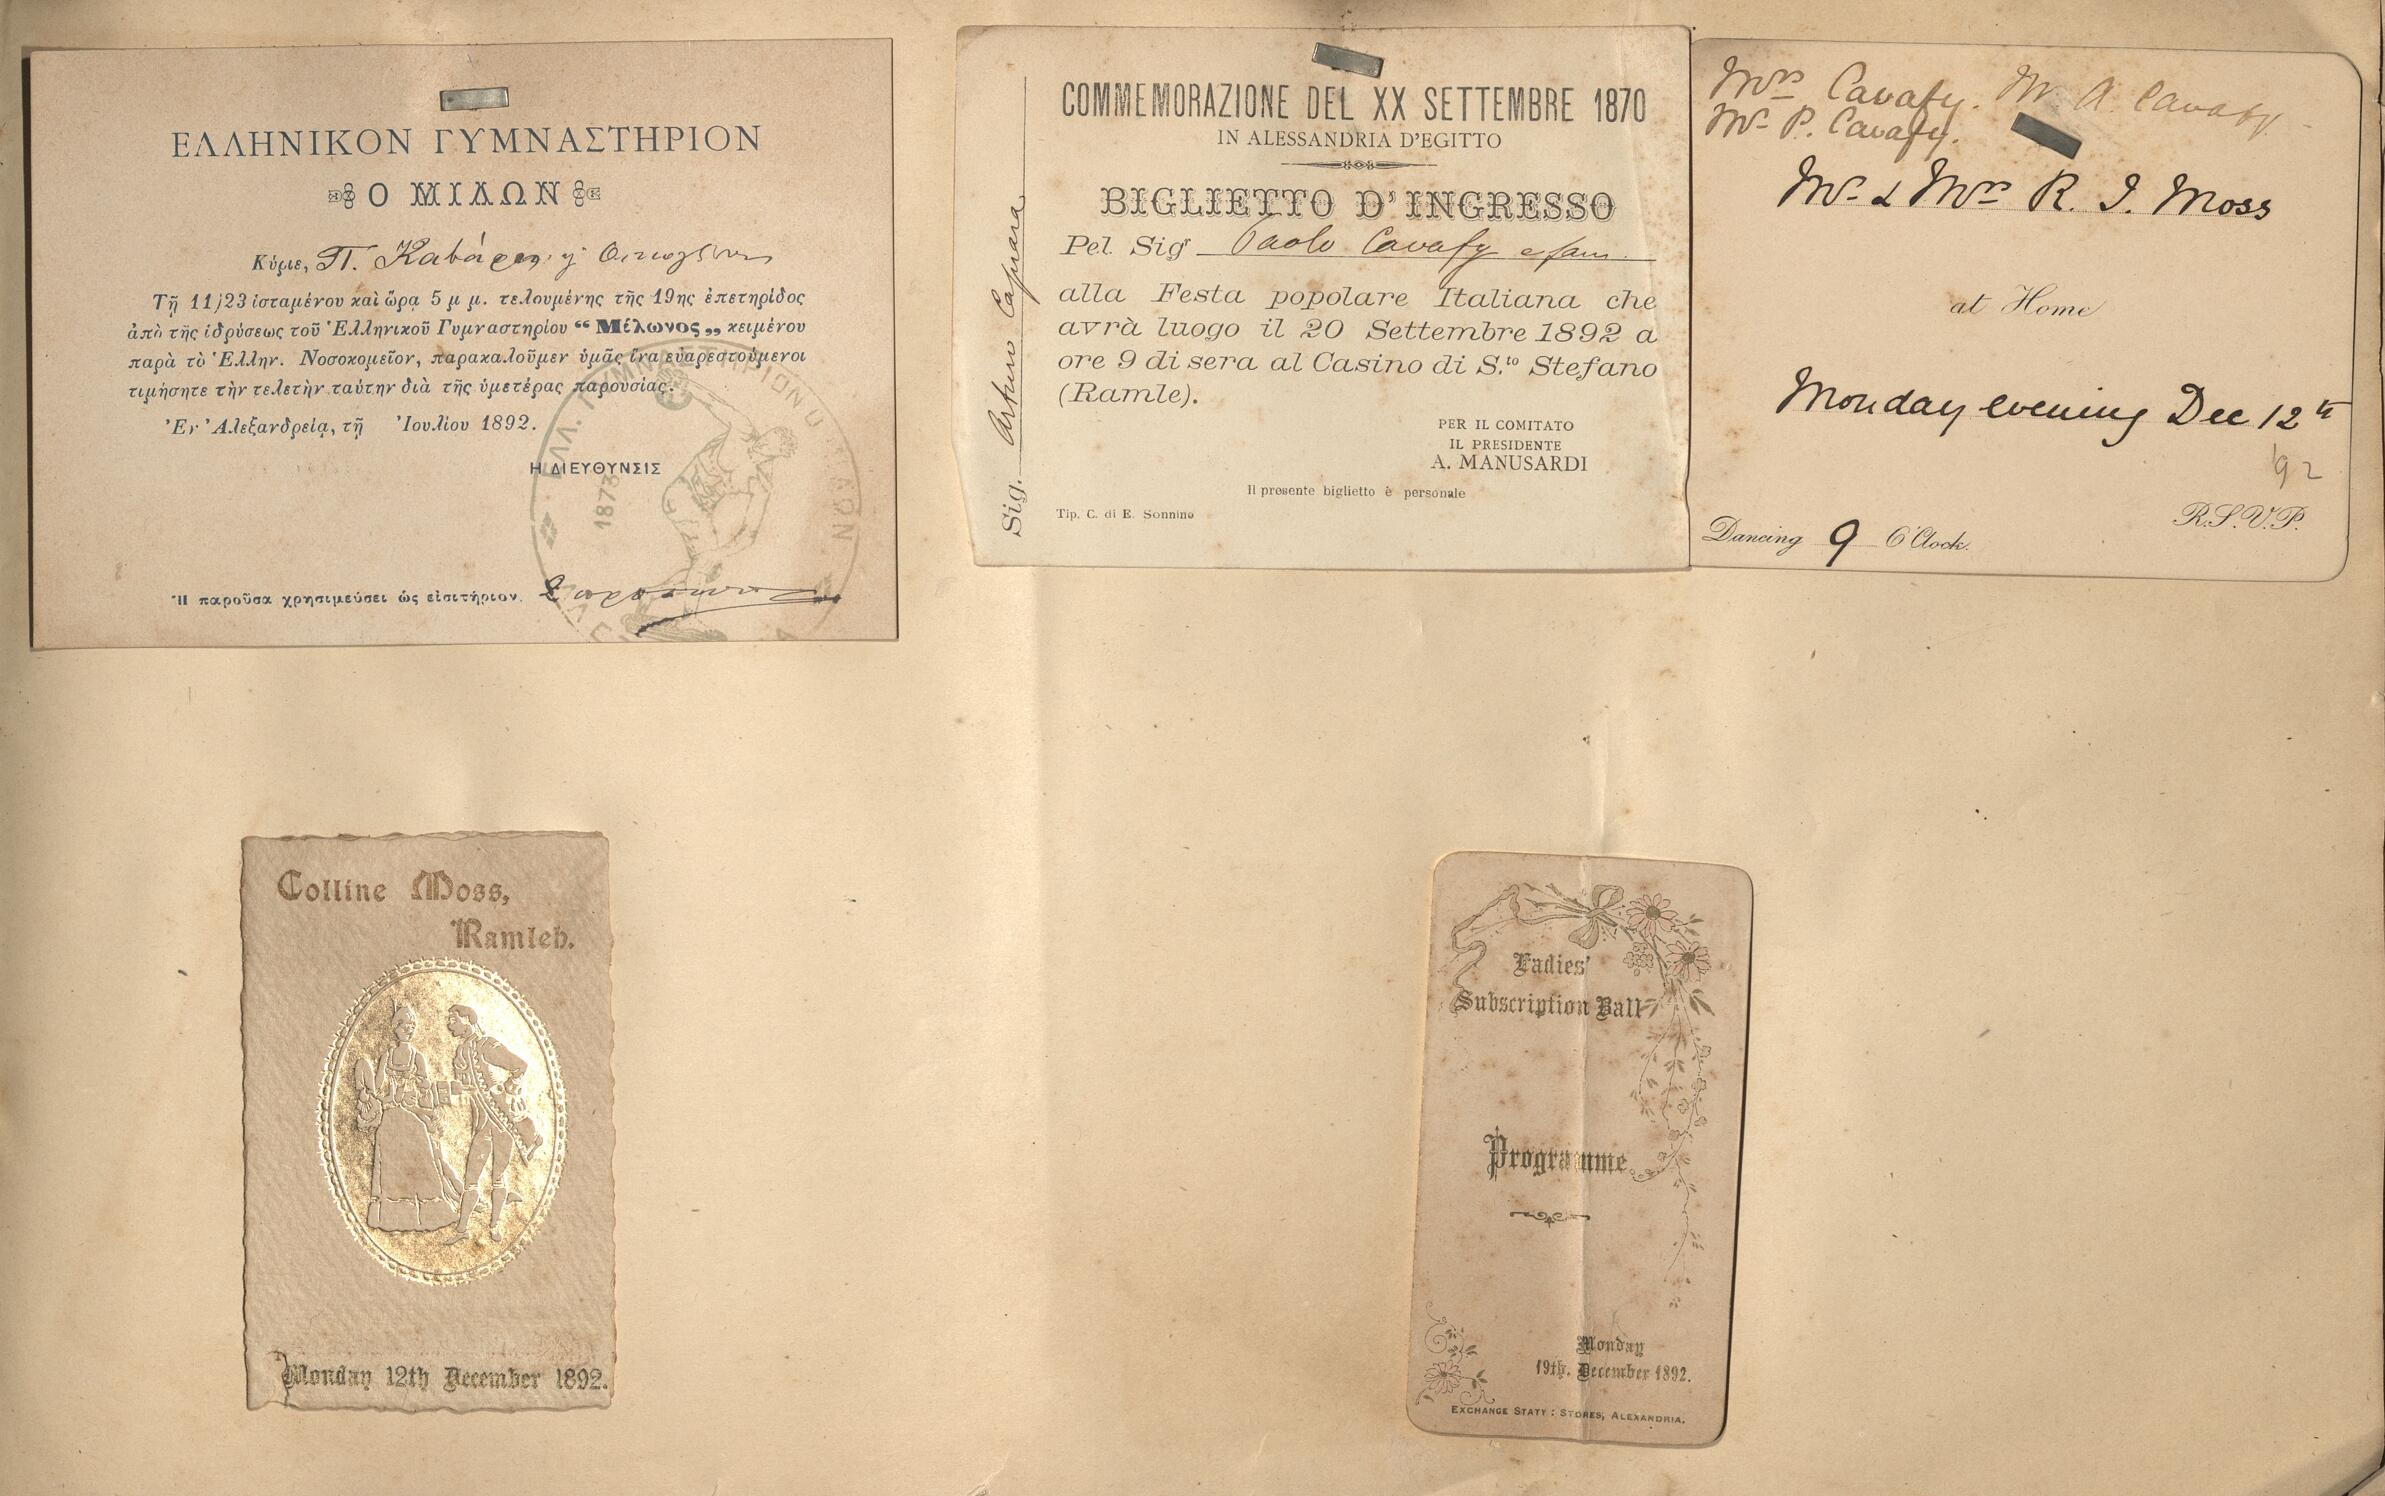 ΕΛΛΗΝΙΚΟΝ ΓΥΜΝΑΣΤΗΡΙΟΝ
Ο ΜΙΛΩΝ
Κύριε, Π. Καβάφην
Τῇ 11/23 ἱσταμένου καὶ ὥρᾳ 5 μ μ. τελουμένης τῆς 19ης ἐπετηρίδος
ἀπὸ τῆς ἱδρύσεως τοῦ Ἑλληνικοῦ Γυμναστηρίου “Μίλωνος„ κειμένου
παρὰ τὸ Ἑλλην. Νοσοκομεῖον, παρακαλοῦμεν ὑμᾶς ἵνα εὐαρεστούμενοι
τιμήσητε τὴν τελετὴν ταύτην διὰ τῆς ὑμετέρας παρουσίας.
Ἐν Ἀλεξανδρείᾳ, τῇ Ἰουλίου 1892.
Η ΔΙΕΥΘΥΝΣΙΣ
ΕΛΛ. ΓΥΜΝΑΣΤΗΡΙΟΝ Ο ΜΙΛΩΝ
1873
Ἡ παροῦσα χρησιμεύσει ὡς εἰσιτήριον.
Sig. Arturo Caprara
COMMEMORAZIONE DEL XX SETTEMBRE 1870
IN ALESSANDRIA D'EGITTO
BIGLIETTO D'INGRESSO
Pel. Sig Paolo Cavafy e fam.
alla Festa popolare Italiana che
avrà luogo il 20 Settembre 1892 a
ore 9 di sera al Casino di S.to Stefano
(Ramle).
PER IL COMITATO
IL PRESIDENTE
A. MANUSARDI
Il presente biglietto è personale
Tip. C. di E. Sonnino
Mrs Cavafy. Mr A Cavafy
Mr P. Cavafy.
Mr & Mrs R. J. Moss
at Home
Monday evening Dec 12th
'92
R.S.V.P.
Dancing 9 O'Clock.
Colline Moss,
Ramleh.
Monday 12th December 1892.
Ladies'
Subscription Ball
Programme
Monday
19th. December 1892.
EXCHANGE STATY: STORES, ALEXANDRIA.